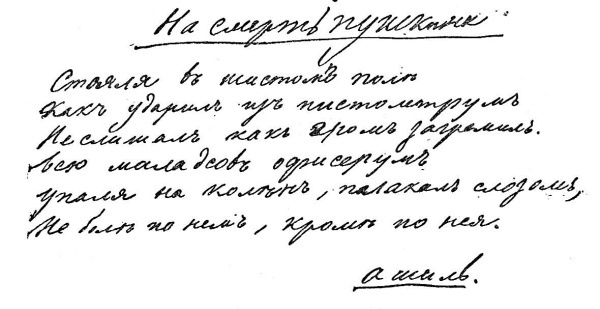 На смертъ пушкина
Стояля въ тистомъ поли
Какъ ударилъ изъ пистолетрумъ
Не слишалъ какъ громъ загремилъ.
Всю маладсовъ офисерумъ
упаля на колѣнъ, палакалъ слозомъ,
Не болѣ по немъ, кромѣ по нея.
ашиль.